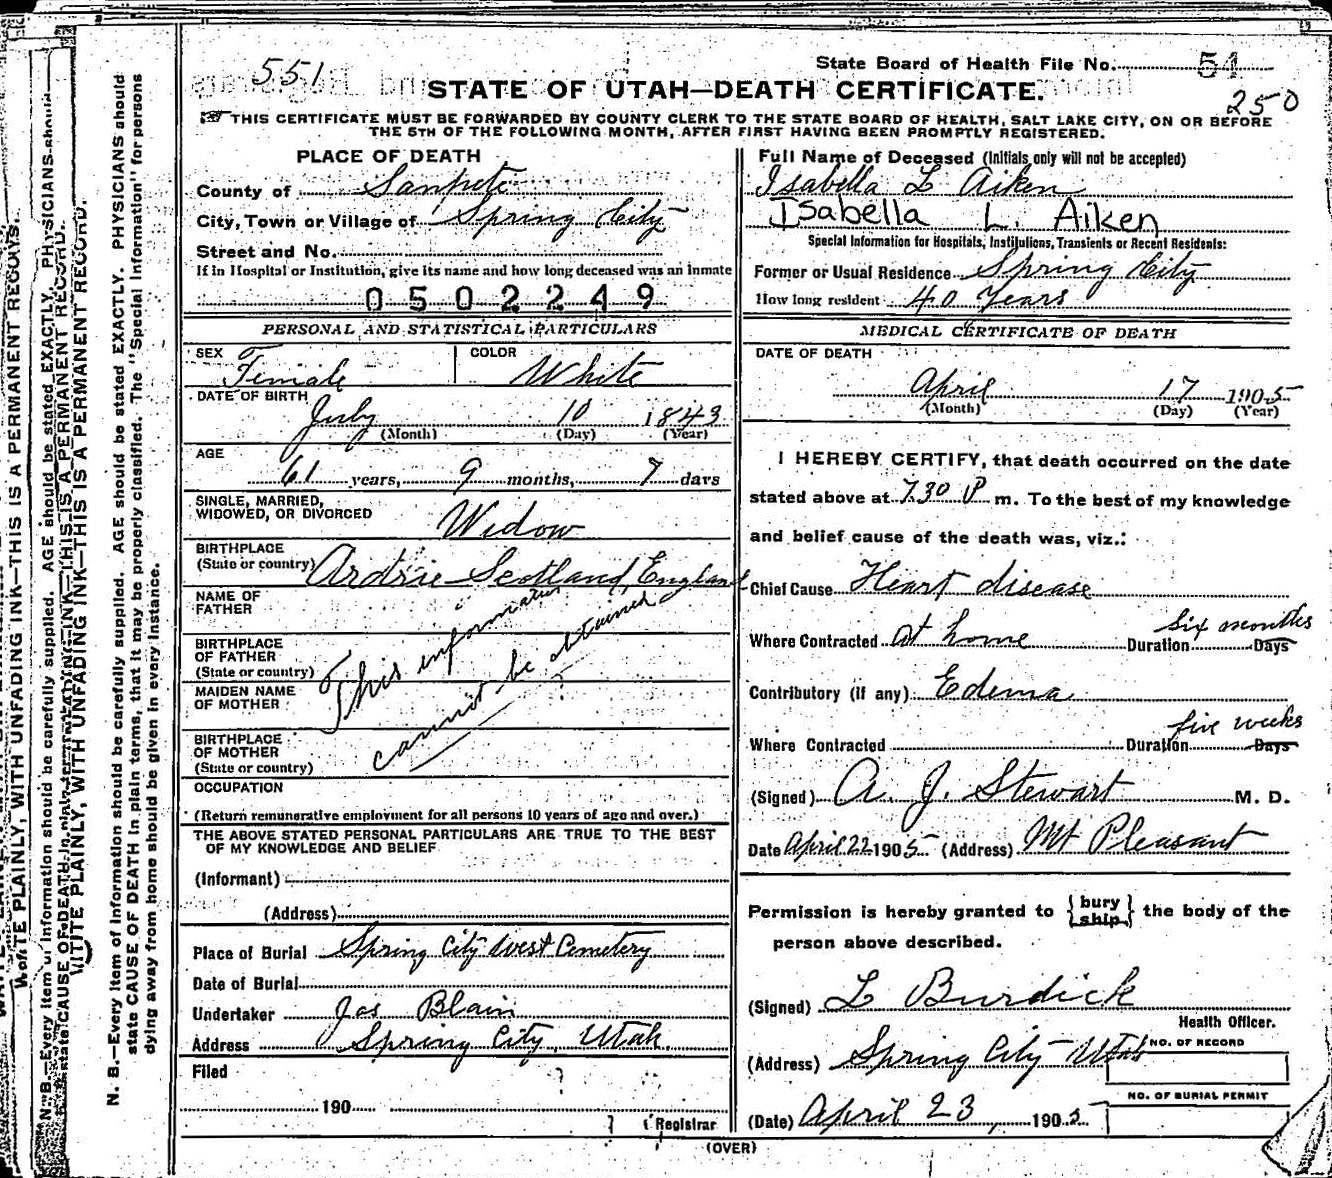 551
State Board of Health File No. 54
STATE OF UTAH—DEATH CERTIFICATE.
250
THIS CERTIFICATE MUST BE FORWARDED BY COUNTY CLERK TO THE STATE BOARD OF HEALTH, SALT LAKE CITY, ON OR BEFORE
THE 5TH OF THE FOLLOWING MONTH, AFTER FIRST HAVING BEEN PROMPTLY REGISTERED.
PLACE OF DEATH
County of Sanpete
City, Town or Village of Spring City
Street and No.
If in Hospital or Institution, give its name and how long deceased was an inmate
0502249
Full Name of Deceased (Initials only will not be accepted)
Isabella L Aiken
Isabella L. Aiken
Special Information for Hospitals, Institutions, Transients or Recent Residents:
Former or Usual Residence Spring City
How long resident 40 Years
PERSONAL AND STATISTICAL PARTICULARS
SEX Female
COLOR White
DATE OF BIRTH
July 10 1843
(Month) (Day) (Year)
AGE
61 years, 9 months, 7 days
SINGLE, MARRIED,
WIDOWED, OR DIVORCED Widow
BIRTHPLACE
(State or country) Ardrie Scotland, England
NAME OF
FATHER
BIRTHPLACE
OF FATHER
(State or country)
MAIDEN NAME
OF MOTHER
BIRTHPLACE
OF MOTHER
(State or country)
This information
cannot be obtained
?
OCCUPATION
(Return remunerative employment for all persons 10 years of age and over.)
THE ABOVE STATED PERSONAL PARTICULARS ARE TRUE TO THE BEST
OF MY KNOWLEDGE AND BELIEF
(Informant)
(Address)
Place of Burial Spring City West Cemetery
Date of Burial
Undertaker Jas Blain
Address Spring City, Utah.
Filed
190
Registrar
MEDICAL CERTIFICATE OF DEATH
DATE OF DEATH
April 17 1905
(Month) (Day) (Year)
I HEREBY CERTIFY, that death occurred on the date
stated above at 7.30 P m. To the best of my knowledge
and belief cause of the death was, viz.:
Chief Cause Heart disease
Where Contracted at home Duration six months Days
Contributory (if any) Edema
Where Contracted Duration five weeks Days
(Signed) A. J. Stewart M. D.
Date April 22 1905 (Address) Mt Pleasant
Permission is hereby granted to {bury ship} the body of the
person above described.
(Signed) L Burdick
Health Officer.
(Address) Spring City Utah
NO. OF RECORD
NO. OF BURIAL PERMIT
(Date) April 23, 1905
(OVER)
N. B.—Every item of information should be carefully supplied. AGE should be stated EXACTLY. PHYSICIANS should
state CAUSE OF DEATH in plain terms, that it may be properly classified. The "Special Information" for persons
dying away from home should be given in every instance.
WRITE PLAINLY, WITH UNFADING INK—THIS IS A PERMANENT RECORD.
N. B.—Every item of information should be carefully supplied. AGE should be stated EXACTLY. PHYSICIANS should
WRITE PLAINLY, WITH UNFADING INK—THIS IS A PERMANENT RECORD.